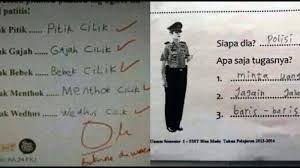 patitis!
ak Pitik ..... Pitik Cilik
ak Gajah .... Gajah Cilik
ak Bebek ..... Bebek Cilik
ak Menthok .... Menthok Cilik
ak Wedhus .... Wedhus Cilik
Siapa dia? Polisi
Apa saja tugasnya?
1. minta uang
2. Jagain
3. baris - baris
Semester 1 - Tahun Pelajaran 2013-2014